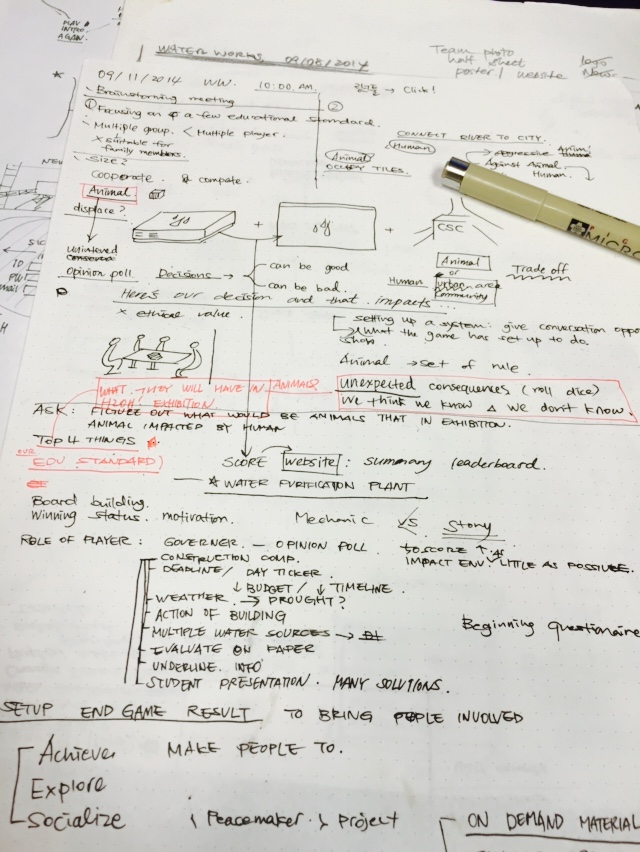 PLAY &
INTRO.
AGAIN.
WATER WORKS 09/08/2014
Team photo
half sheet
poster / website
logo
09/11/2014 WW. 10:00 AM. → Click!
Brainstorming meeting
① Focusing on a few educational standard.
Multiple group. < Multiple player.
x suitable for
family members.
Size?
Cooperate. & compete.
②
CONNECT RIVER TO CITY.
Human
Animal
OCCUPY TILES.
→ aggressive Animal
Human
Against Animal
Human.
Animal
displace?
+
+
CSC
MICRO
unintened
consensed
opinion poll
Decisions →
can be good
can be bad.
Animal
or
Human urban area
Community
Trade off
Here's our decision and that impacts...
x ethical value.
setting up a system: give conversation oppo
show what the game has set up to do.
Animal → set of rule.
WHAT THEY WILL HAVE IN ANIMALS?
H2OH! EXHIBITION.
unexpected consequences (roll dice)
We think we know △ we don't know.
ASK: FIGURE OUT WHAT WOULD BE ANIMALS THAT IN EXHIBITION.
ANIMAL IMPACTED BY HUMAN
TOP 4 THINGS
OUR
EDU STANDARD)
SCORE website: summary leaderboard.
☆ WATER PURIFICATION PLANT
Board building.
Winning status. motivation.
Mechanic VS Story
ROLE OF PLAYER: GOVERNER. — OPINION POLL.
TO SCORE ↑ AS
IMPACT ENV. LITTLE AS POSSIVLE.
CONSTRUCTION COMP.
DEADLINE / DAY TICKER.
↓ BUDGET / ↓ TIMELINE.
WEATHER → DROUGHT?
ACTION OF BUILDING
MULTIPLE WATER SOURCES →
EVALUATE ON PAPER
UNDERLINE. INFO
STUDENT PRESENTATION. MANY SOLUTIONS.
Beginning questionaire
SETUP END GAME RESULT TO BRING PEOPLE INVOLVED
Achieve MAKE PEOPLE TO.
Explore
Socialize < Peacemaker > Project
ON DEMAND MATERIAL